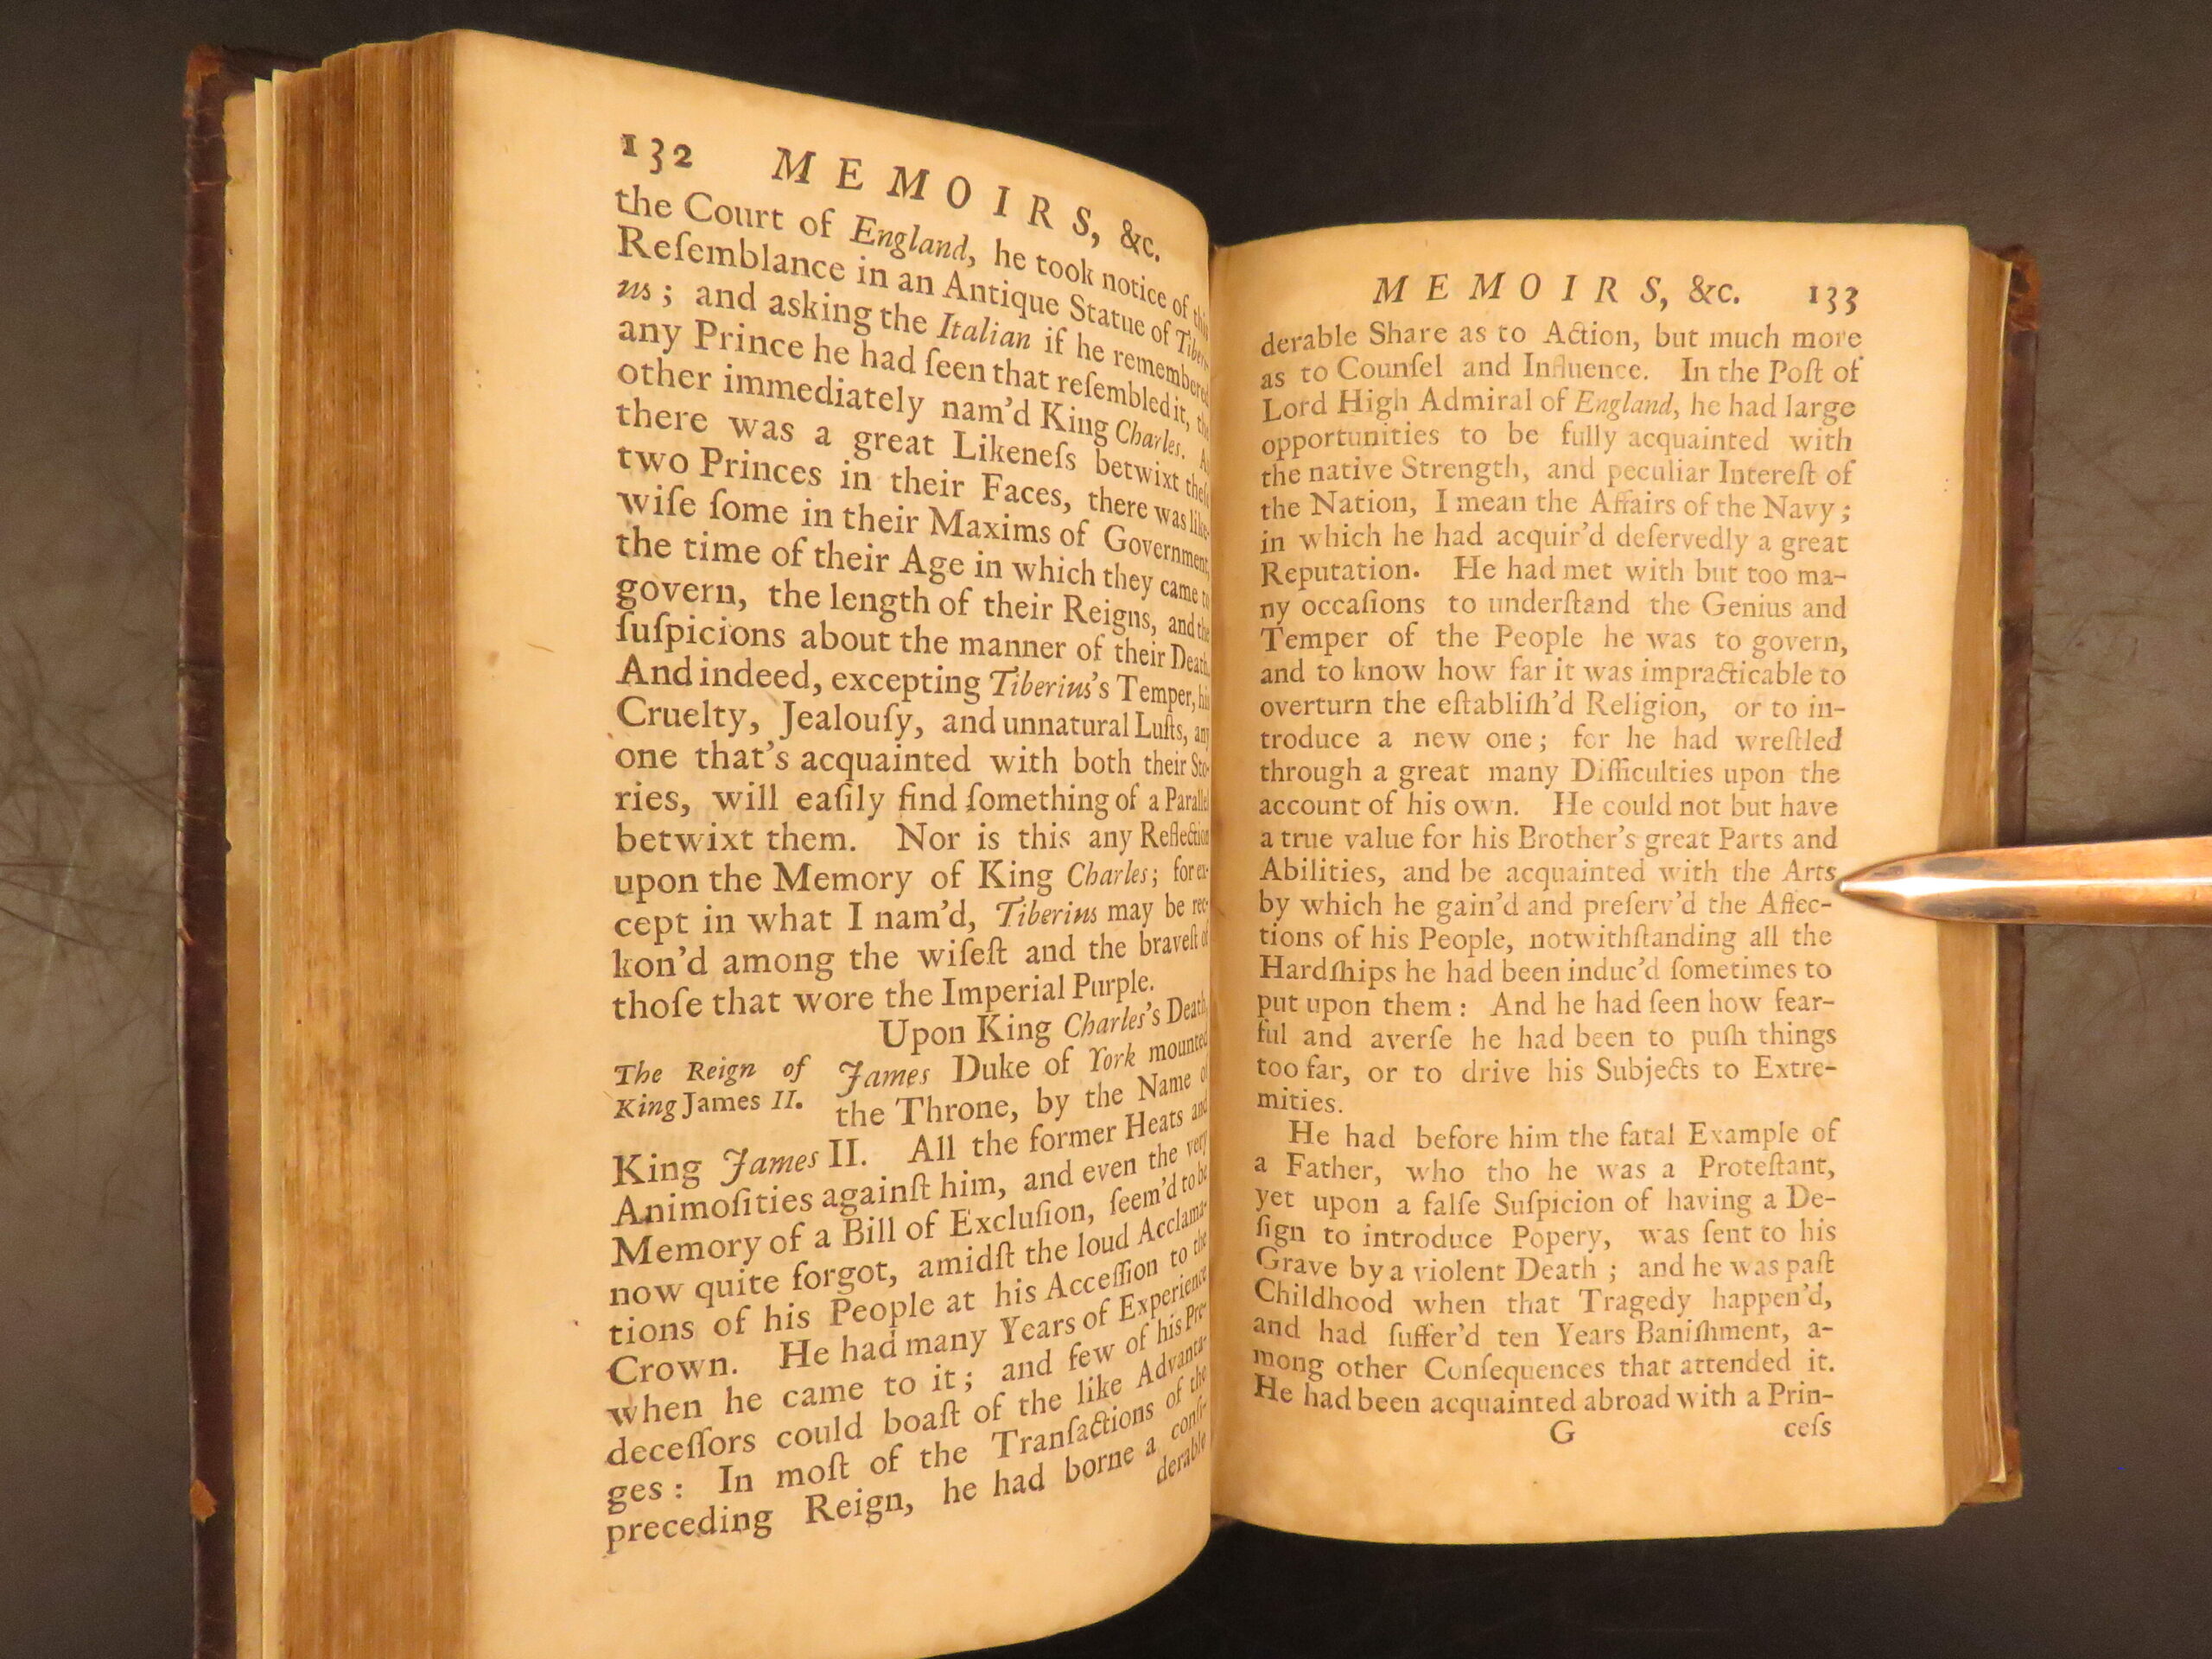 132 MEMOIRS, &c.
the Court of England, he took notice of this
Reſemblance in an Antique Statue of Tiberi-
us; and asking the Italian if he remembered
any Prince he had ſeen that reſembled it, the
other immediately nam'd King Charles. As
there was a great Likeneſs betwixt theſe
two Princes in their Faces, there was like-
wiſe ſome in their Maxims of Government,
the time of their Age in which they came to
govern, the length of their Reigns, and the
ſuſpicions about the manner of their Death.
And indeed, excepting Tiberius's Temper, his
Cruelty, Jealouſy, and unnatural Luſts, any
one that's acquainted with both their Sto-
ries, will eaſily find ſomething of a Parallel
betwixt them. Nor is this any Reflection
upon the Memory of King Charles; for ex-
cept in what I nam'd, Tiberius may be rec-
kon'd among the wiſeſt and the braveſt of
thoſe that wore the Imperial Purple.
Upon King Charles's Death,
The Reign of King James II.
James Duke of York mounted
the Throne, by the Name of
King James II. All the former Heats and
Animoſities againſt him, and even the very
Memory of a Bill of Excluſion, ſeem'd to be
now quite forgot, amidſt the loud Acclama-
tions of his People at his Acceſſion to the
Crown. He had many Years of Experience
when he came to it; and few of his Pre-
deceſſors could boaſt of the like Advanta-
ges: In moſt of the Tranſactions of the
preceding Reign, he had borne a conſi-
derable
MEMOIRS, &c. 133
derable Share as to Action, but much more
as to Counſel and Influence. In the Poſt of
Lord High Admiral of England, he had large
opportunities to be fully acquainted with
the native Strength, and peculiar Intereſt of
the Nation, I mean the Affairs of the Navy;
in which he had acquir'd deſervedly a great
Reputation. He had met with but too ma-
ny occaſions to underſtand the Genius and
Temper of the People he was to govern,
and to know how far it was impracticable to
overturn the eſtabliſh'd Religion, or to in-
troduce a new one; for he had wreſtled
through a great many Difficulties upon the
account of his own. He could not but have
a true value for his Brother's great Parts and
Abilities, and be acquainted with the Arts
by which he gain'd and preſerv'd the Affec-
tions of his People, notwithſtanding all the
Hardſhips he had been induc'd ſometimes to
put upon them: And he had ſeen how fear-
ful and averſe he had been to puſh things
too far, or to drive his Subjects to Extre-
mities.
He had before him the fatal Example of
a Father, who tho he was a Proteſtant,
yet upon a falſe Suſpicion of having a De-
ſign to introduce Popery, was ſent to his
Grave by a violent Death; and he was paſt
Childhood when that Tragedy happen'd,
and had ſuffer'd ten Years Baniſhment, a-
mong other Conſequences that attended it.
He had been acquainted abroad with a Prin-
G ceſs